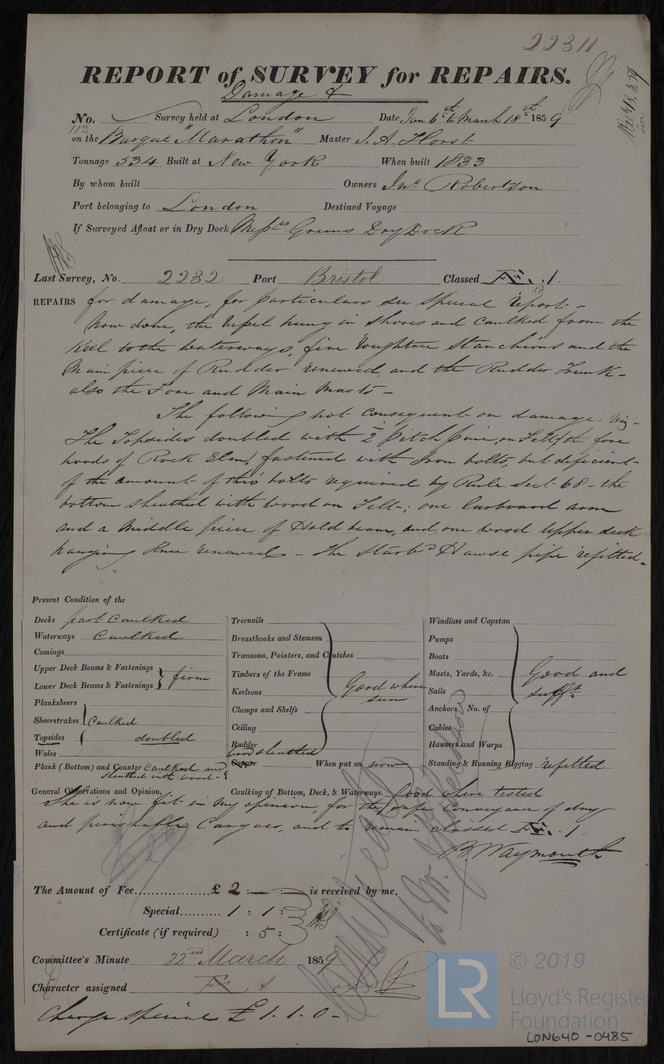 22311
REPORT of SURVEY for REPAIRS.
Damage &
No. Survey held at London Date Jan 6th to March 18th 1859
113
on the Barque "Marathon" Master J. A. Horst
Tonnage 534 Built at New York When built 1833
By whom built Owners Jno. Robertson
Port belonging to London Destined Voyage
If Surveyed Afloat or in Dry Dock Messrs Greens Dry Dock
Last Survey, No. 2232 Port Bristol Classed Æ. 1.
REPAIRS for damage, for particulars see Special Report.-
Now done, the Vessel hung in Shores and Caulked from the
Keel to the waterways, five Roughtree Stanchions and the
Main piece of Rudder renewed and the Rudder Trunk -
also the Fore and Main Masts -
The following not consequent on damage. Viz -
The Topsides doubled with 2 Pitch pine, on Felt, the fore
hoods of Rock Elm, fastened with Iron bolts, but deficient
of the amount of thro' bolts required by Rule Sect 68 - the
bottom sheathed with wood on Felt -; one Larboard arm
and a Middle piece of Hold beam, and one wood Upper deck
hanging Knee renewed - The Starbd Hawse pipe refitted -
Present Condition of the
Decks part Caulked
Waterways Caulked
Comings
Upper Deck Beams & Fastenings
Lower Deck Beams & Fastenings } firm
Planksheers
Sheerstrakes } Caulked
Topsides doubled
Wales
Plank (Bottom) and Counter Caulked and
sheathed with wood -
Treenails
Breasthooks and Stemson
Transoms, Pointers, and Crutches
Timbers of the Frame
Keelsons
Clamps and Shelfs
Ceiling
Rudder
Good where
seen
wood sheathed
Copper When put on now
Windlass and Capstan
Pumps
Boats
Masts, Yards, &c.
Sails
Anchors, No. of
Cables
Hawsers and Warps
Good and
sufft.
Standing & Running Rigging refitted
General Observations and Opinion, Caulking of Bottom, Deck, & Waterways. Good where tested
She is now fit in my opinion, for the safe conveyance of dry
and perishable Cargoes, and to remain classed Æ. 1
B. Waymouth
The Amount of Fee £ 2 : — : is received by me,
Special 1 : 1 :
Certificate (if required) : 5 :
Committee's Minute 22nd March 1859
Character assigned Æ. 1
Charge special £1.1.0 -
LR
© 2019
Lloyd's Register
Foundation
LON640-0485